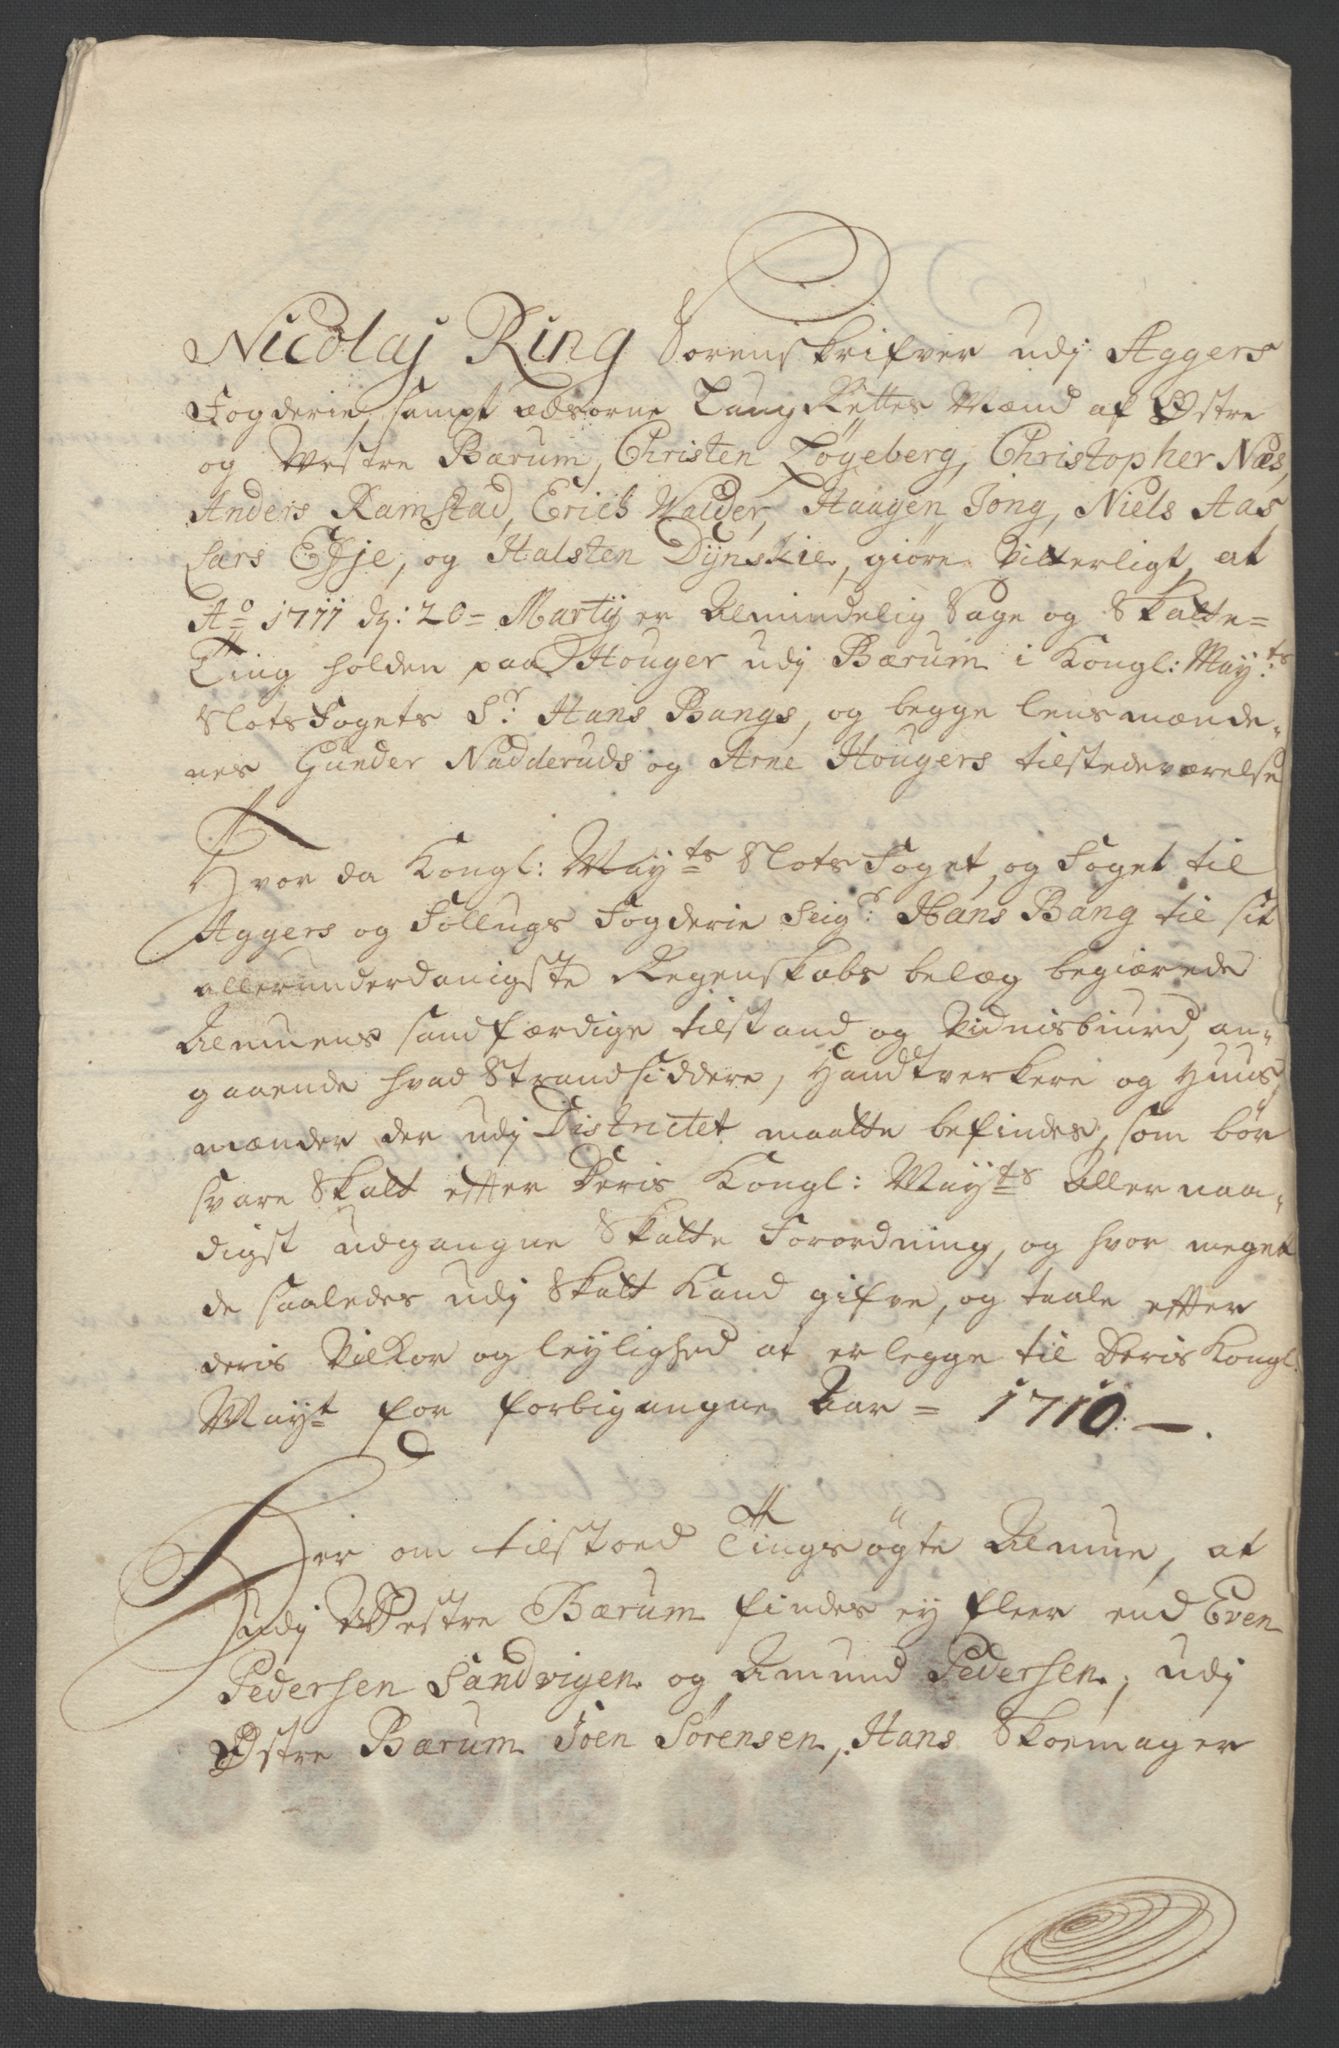 Nicolaj Ring Sorenskrifver udj Aggers
Fogderie, sampt Edsorne Laug Rettes Mænd af Østre
og Westre Bærum, Christen Løgeberg, Christopher Næs,
Anders Ramstad, Erich Walder, Haagen Jong, Niels Aas
Lars Effje, og Halsten Dÿnskie, giøre Vitterligt, at
Ao 1711 dj: 20= Martij er Almindelig Sage og Skatte=
Ting holden paa Houger udj Bærum i Kongl: Mayts:
Slots Fogets Sr. Hans Bangs, og begge lensmænde-
nes Gunder Nadderuds og Arne Hougers tilstedeværelse
Hvor da Kongl: Mayts Slots Foget, og Foget til
Aggers og Follougs Fogderie Seigr: Hans Bang til sit
allerunderdanigste Regenskabs belæg begiærede
Almuens sandfærdige tilstand og Vidnisbiurd, an-
gaaende hvad Strandsiddere, Handtverkere og Huus
mænder der udj Districtet maatte befindes, som bør
svare Skatt efter Deris Kongl: Mayts Aller naa-
digst udgangne Skatte Forordning, og hvor meget
de saaledes udj Skatt Kand gifve, og taale efter
deris Vilkor og leylighed at erlegge til Deris Kongl.
Mayt for forbigangne Aar = 1710 —.
Her om tilstoed Tingsøgte Almue, at
udj Westre Bærum findes ey fleer end Even
Pedersen Sandvigen og Amund Pedersen, udj
Østre Bærum Joen Sørensen, Hans Skoemager